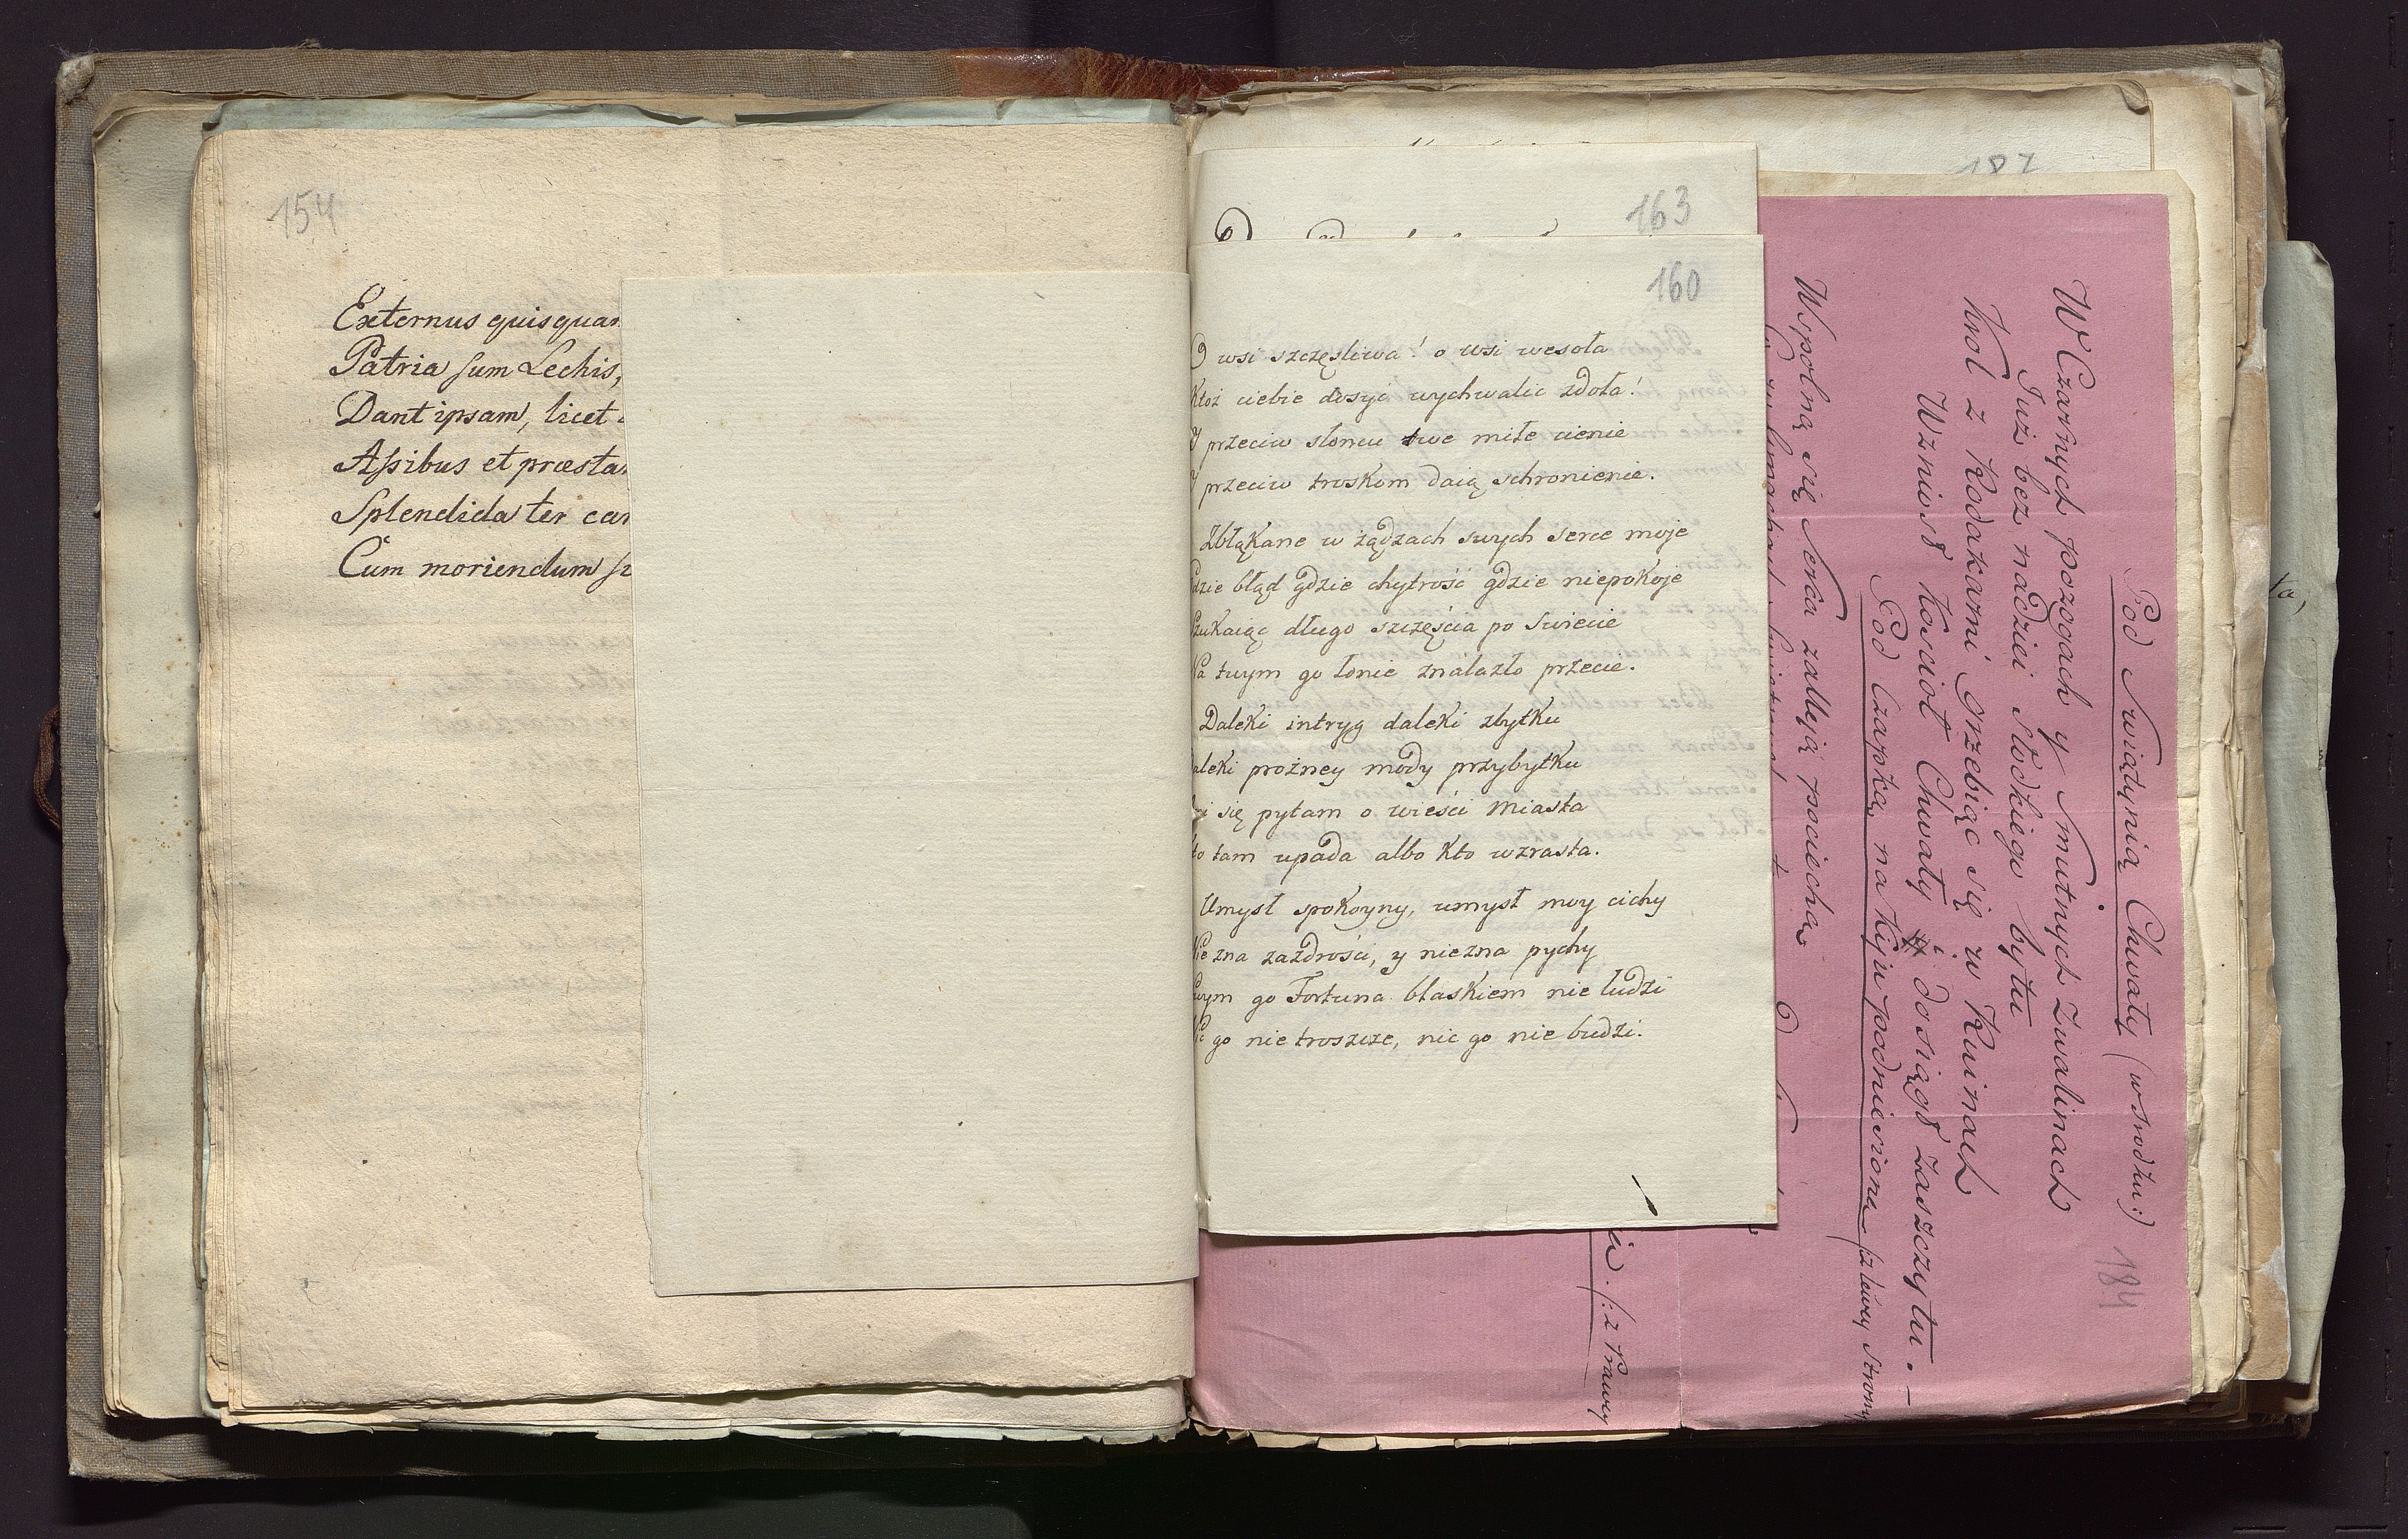 154
Externus quisquam
Patria sum Lechis,
Dant ipsam, licet
Assibus et præsta
Splendida ter car
Cum moriendum si
163
160
O wsi szczęsliwa! o wsi wesoła
Ktoż ciebie dosyć wychwalic zdoła!
Y przeciw słoncu twe miłe cienie
Y przeciw troskom daią schronienie.
Zbłąkane w żądzach swych serce moje
dzie błąd gdzie chytrość gdzie niepokoje
Szukaiąc długo szczęścia po swiecie
Na twym go łonie znalazło przecie.
Daleki intryg daleki zbytku
aleki prożney mody przybytku
ni się pytam o wieści miasta
to tam upada albo kto wzrasta.
Umysł spokoyny, umysł moy cichy
Nie zna zazdrości, y niezna pychy
Swym go Fortuna blaskiem nie łudzi
Nic go nie troszcze, nic go nie budzi.
187
184
Pod Swiątynią Chwały (wsrodku:)
W Czarnych pożogach y smutnych Zwalinach
Już bez nadziei Słodkiego bytu
Krol z Rodakami Grzebiąc się w Ruinach
Wzniosł Koscioł Chwały i dosiągł zaszczytu.–
Pod Czapką na Kiju podniesioną /:z lewey Strony
Wspolną się serca zaleją pociechą
iu. /: z Prawey
ta,